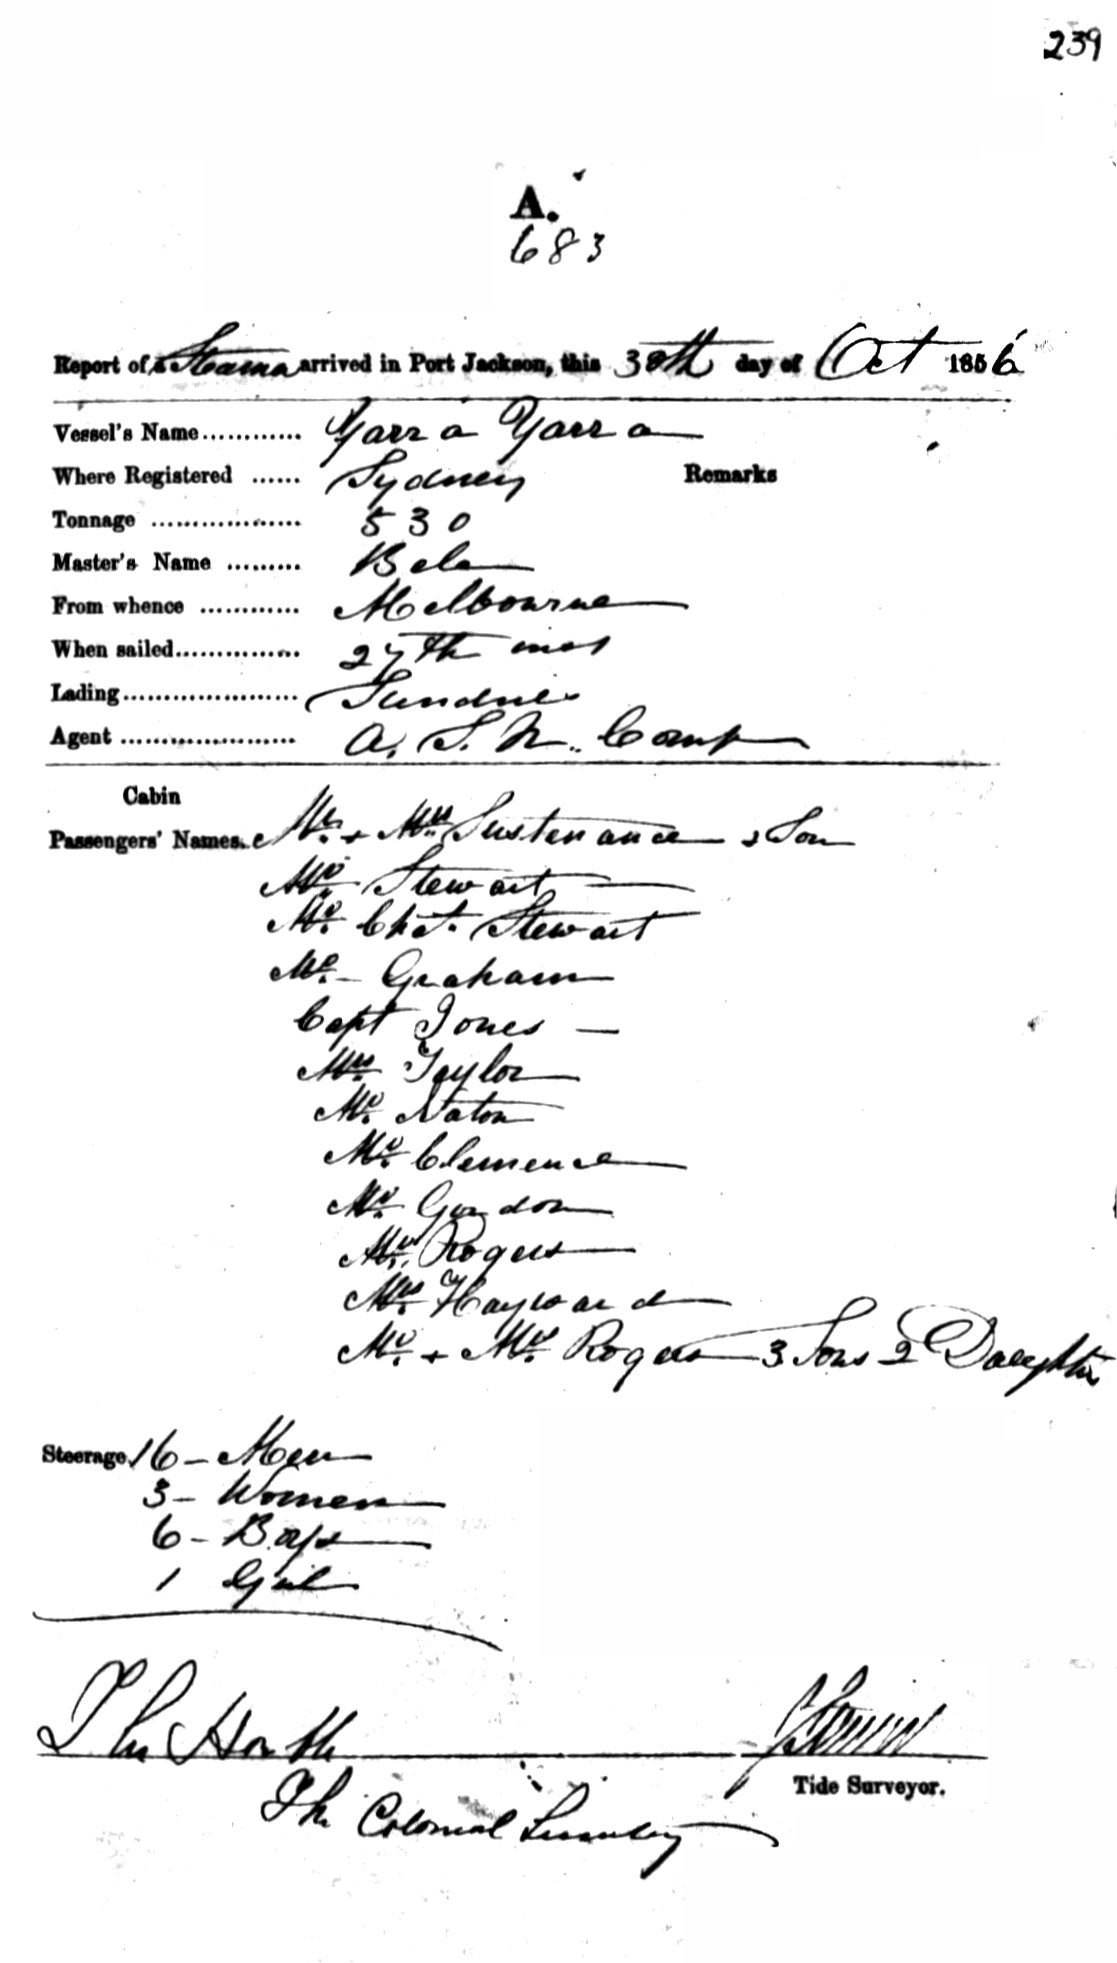 239
A.
683
Report of a Steamer arrived in Port Jackson, this 30th day of Oct 1856
Vessel's Name............ Yarra Yarra
Where Registered ...... Sydney Remarks
Tonnage .................. 530
Master's Name ......... Bell
From whence ............ Melbourne
When sailed............... 27th inst
Lading...................... Sundries
Agent ...................... A. S. N. Comp
Cabin
Passengers' Names. Mr. + Mrs. Sustenance + Son
Stewart
Mr. Chas. Stewart
Mr. Graham
Capt Jones
Mrs. Taylor
Mr. Naton
Mr. Clemence
Mr. Gordon
Mr. Rogers
Mrs. Hayward
Mr. + Mrs. Rogers 3 Sons 2 Daughters
Steerage 16 - Men
3 - Women
6 - Boys
1 Girl
The Honble
Tide Surveyor.
The Colonial Secretary